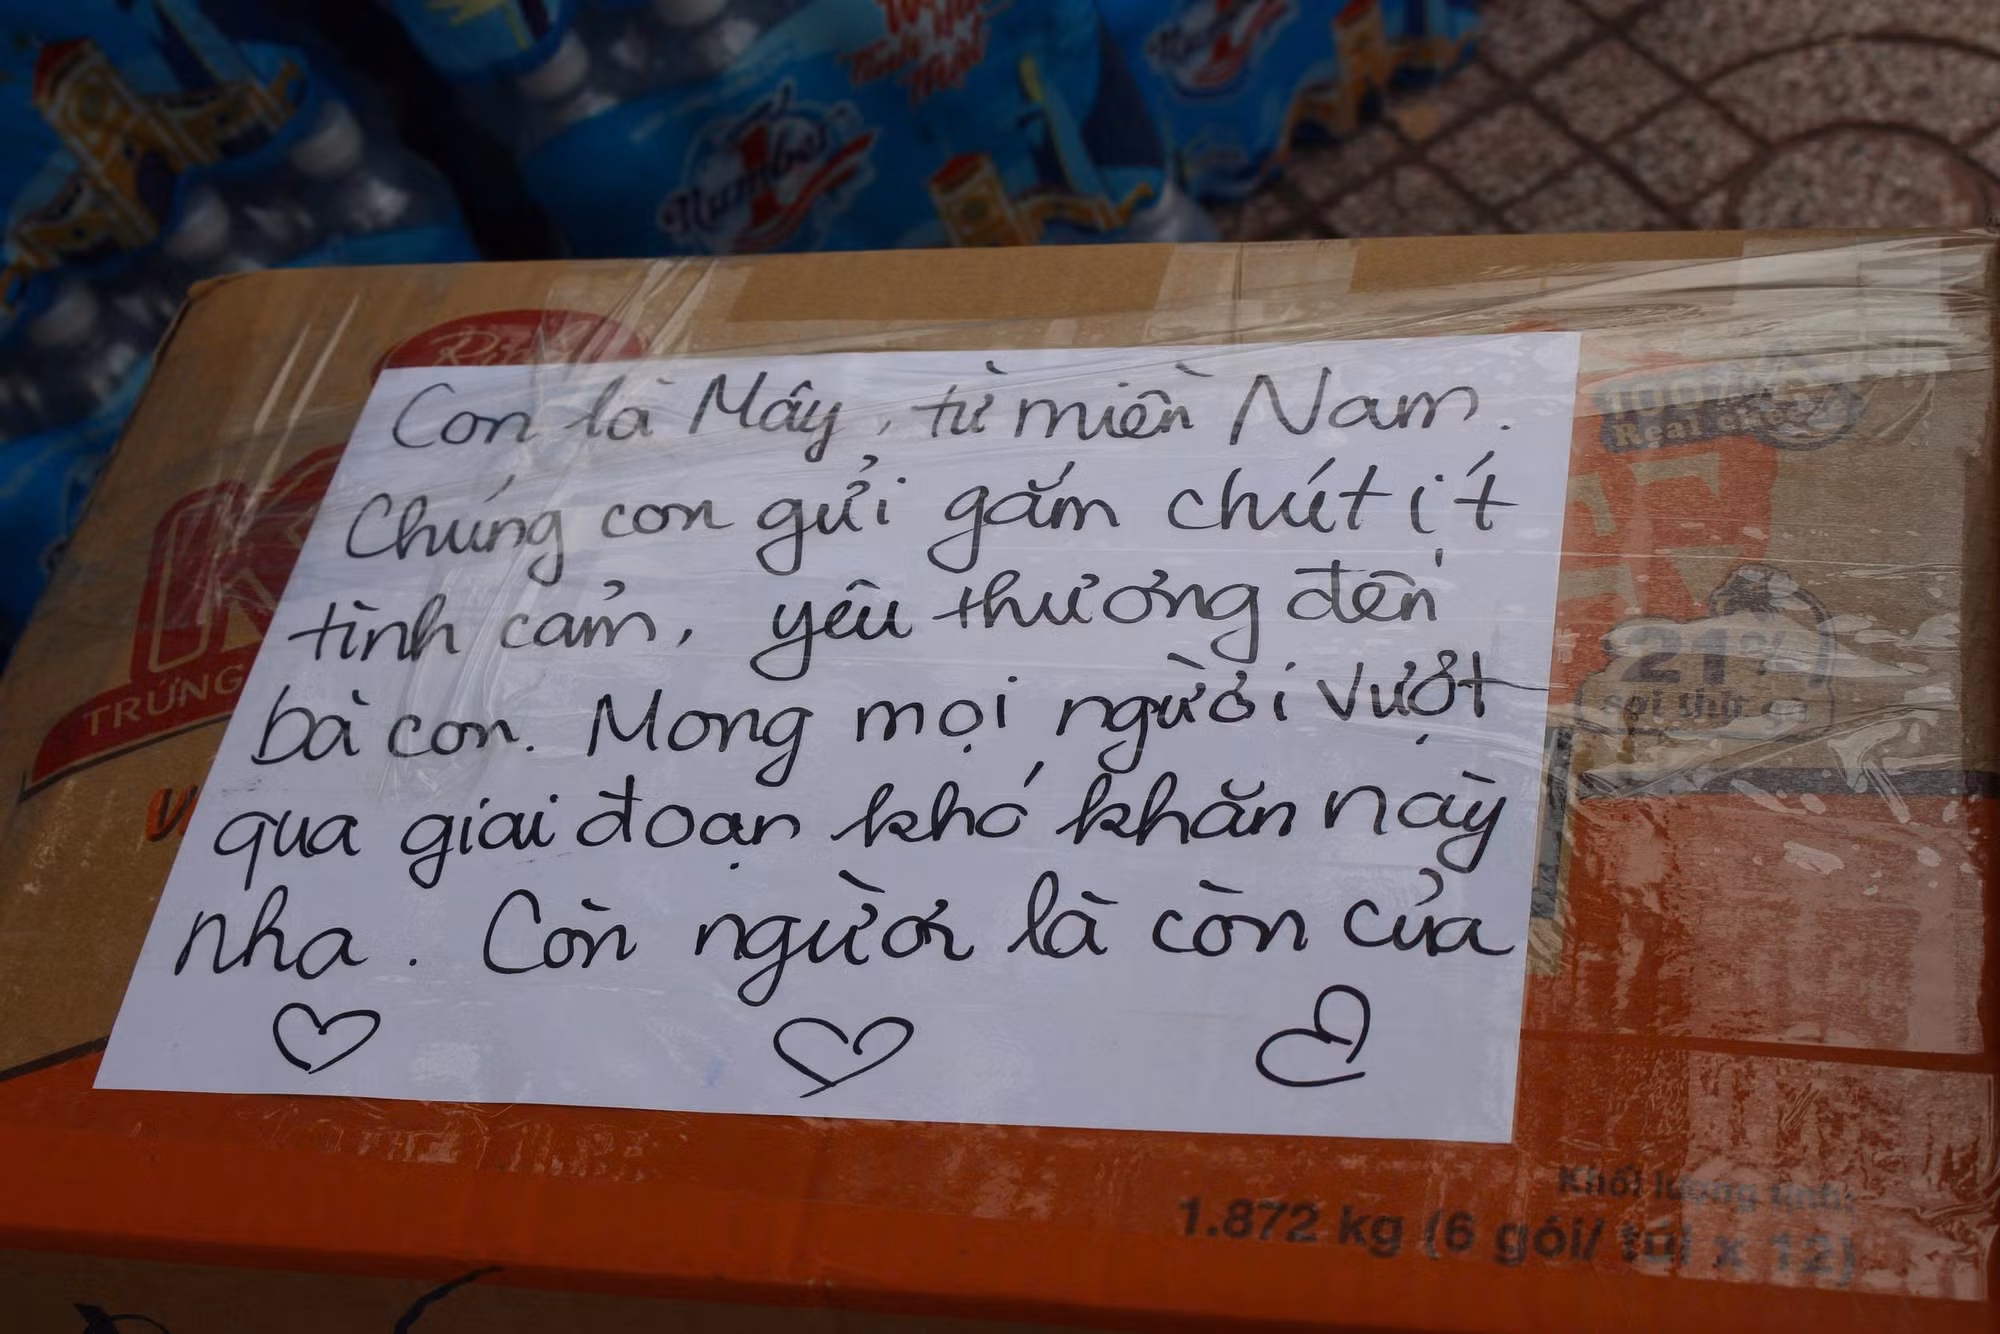 Number 1
Con là Mây, từ miền Nam.
Chúng con gửi gắm chút ít
tình cảm, yêu thương đến
bà con. Mong mọi người vượt
qua giai đoạn khó khăn này
nha. Còn người là còn của
TRỨNG
100%
Real
21%
sợi thịt gà
Khối lượng tịnh:
1.872 kg (6 gói/ túi x 12)